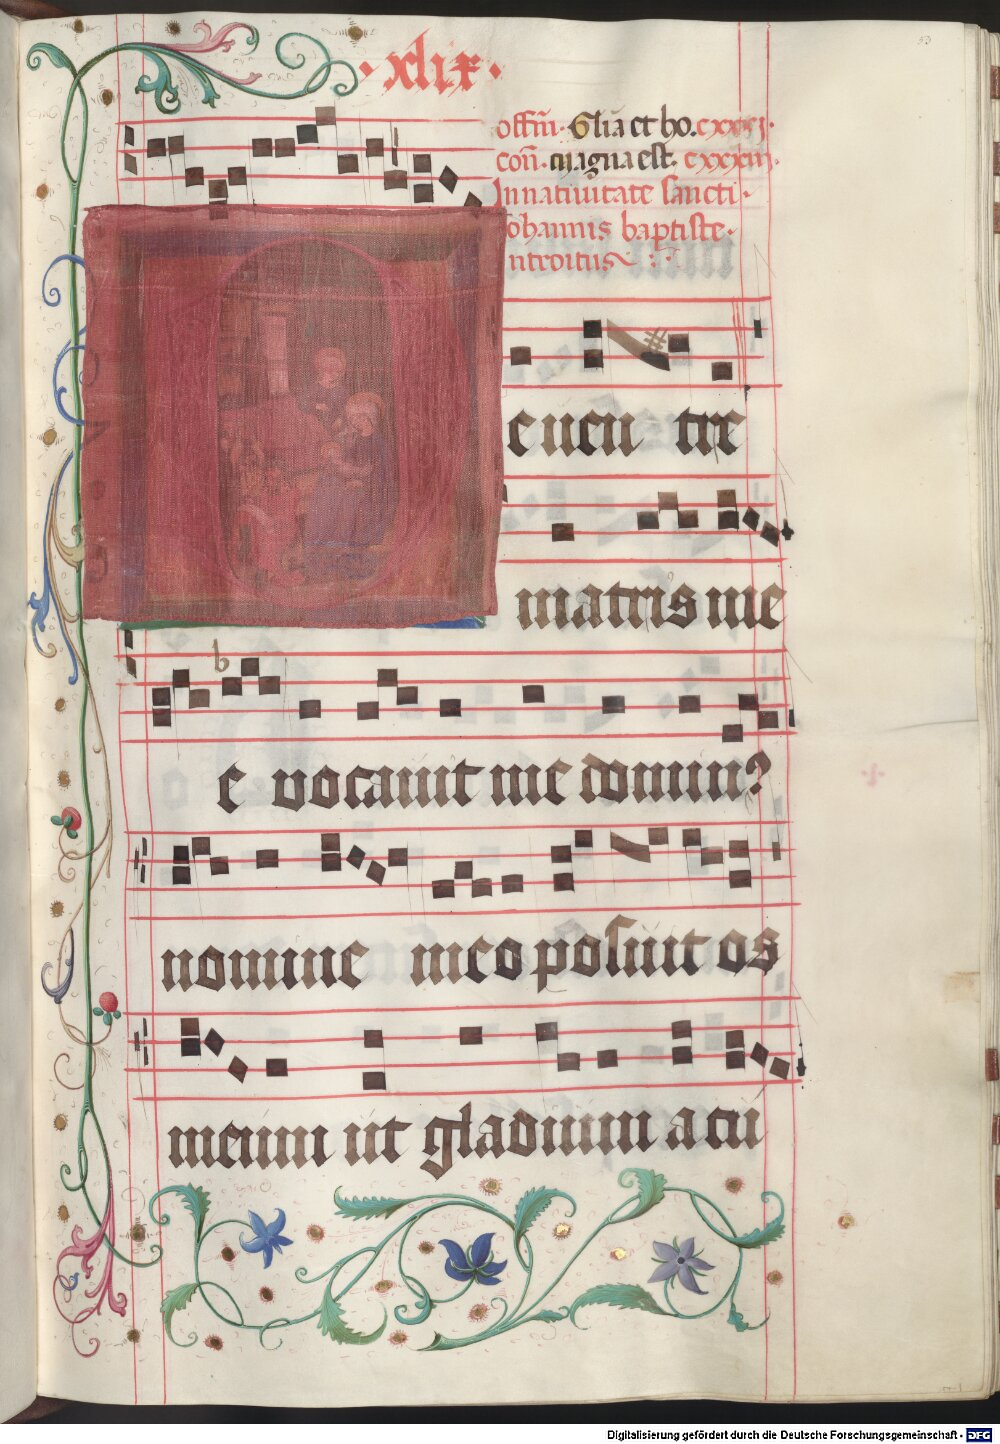 ·xlix·
53
offm̄· Gl̄ia et ho. cxxxj·
con̄· magna est. cxxxiij.
In natiuitate sancti
Johannis baptiste·
introitus
e uen tre
matris me
b
e vocauit me domin9
nomine meo posuit os
meum ut gladium acu
Digitalisierung gefördert durch die Deutsche Forschungsgemeinschaft - DFG